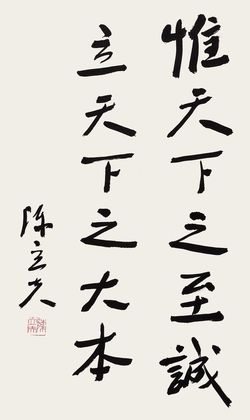 惟天下之至誠
立天下之大本
陈立夫